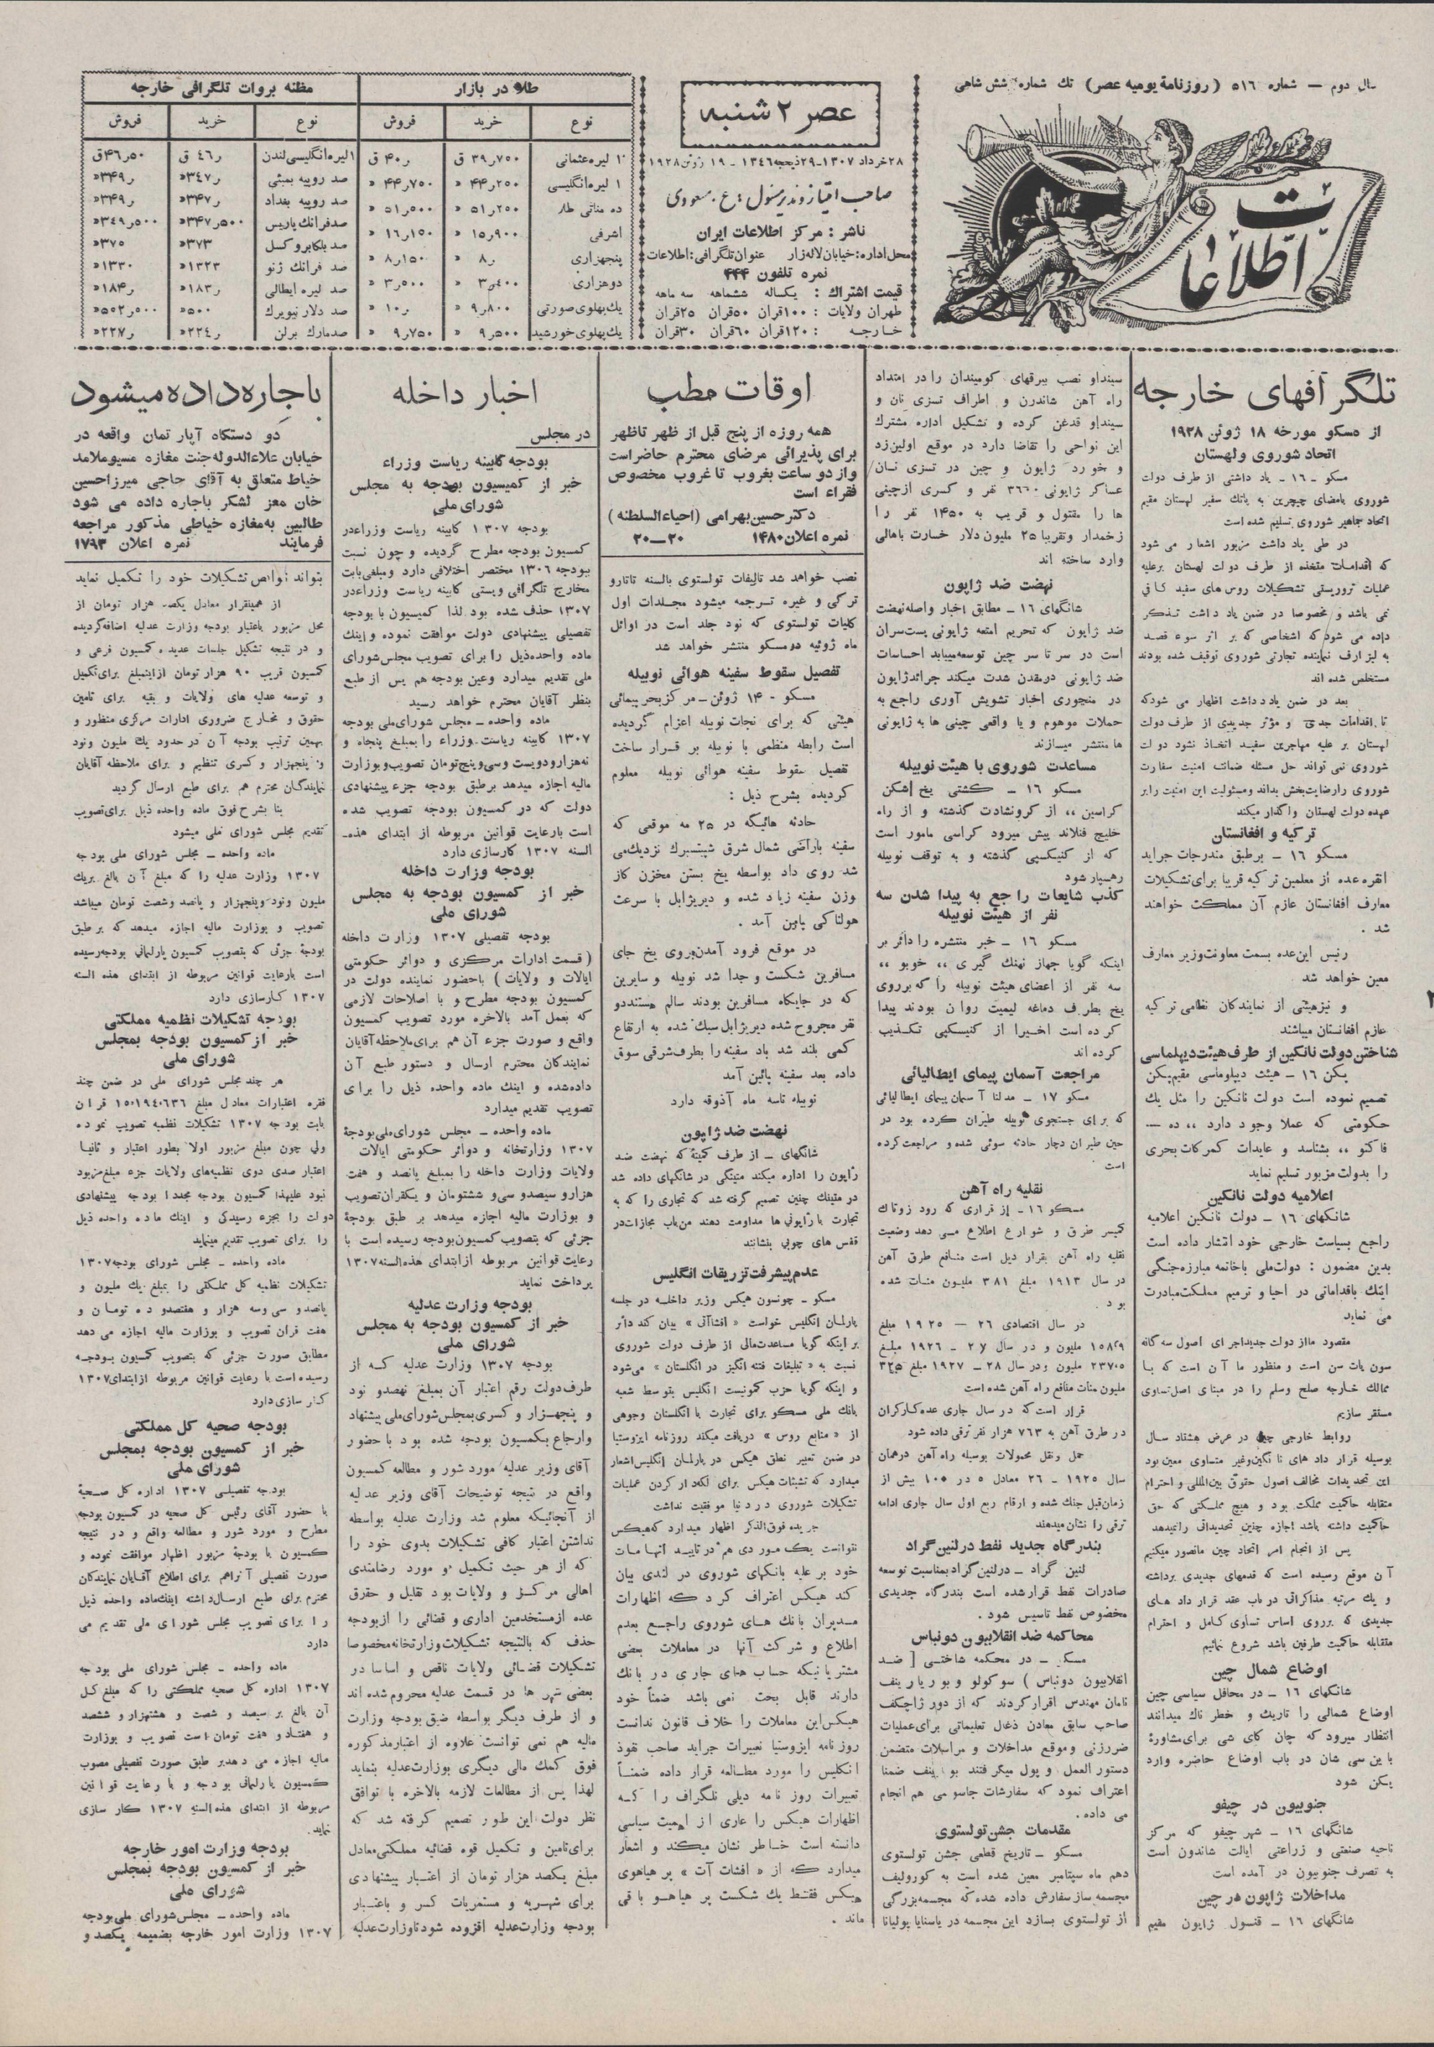 سال دوم — شماره ۵۱۶ (روزنامهٔ یومیه عصر) تك شماره شش شاهی
اطلاعات
عصر ۲ شنبه
۲۸ خرداد ۱۳۰۷ـ۲۹ ذیحجه ۱۳۴۶ - ۱۹ ژوئن ۱۹۲۸
صاحب امتیاز و مدیر مسئول: ع. مسعودی
ناشر : مرکز اطلاعات ایران
محل اداره: خیابان لاله زار عنوان تلگرافی: اطلاعات
نمره تلفون ۴۴۴
قیمت اشتراك : یکساله ششماهه سه ماهه
طهران ولایات : ۱۰۰قران ۵۰قران ۲۵قران
خارجه : ۱۲۰قران ۶۰قران ۳۰قران
طلا در بازار
نوع خرید فروش
۱ لیره عثمانی ۷۵۰ر۳۹ ق ر۴۰ ق
۱ لیره انگلیسی ۲۰۰ر۴۴ « ۷۰۰ر۴۴ «
ده مناتی طلا ۲۵۰ر۵۱ « ۵۰۰ر۵۱ «
اشرفی ۹۰۰ر۱۵ « ۱۵۰ر۱۶ «
پنجهزاری ر۸ « ۱۵۰ر۸ «
دوهزاری ۴۰۰ر۳ « ۵۰۰ر۳ «
یك پهلوی صورتی ۸۰۰ر۹ « ر۱۰ «
یك پهلوی خورشید ۵۰۰ر۹ « ۷۵۰ر۹ «
مظنه بروات تلگرافی خارجه
نوع خرید فروش
۱ لیره انگلیسی لندن ر۴۶ ق ۵۰ر۴۶ق
صد روپیه بمبئی ر۳۴۷« ر۳۴۹«
صد روپیه بغداد ر۳۴۷« ر۳۴۹«
صد فرانك پاریس ۵۰۰ر۳۴۷« ۵۰۰ر۳۴۹«
صد بلکا بروکسل ۳۷۳« ۳۷۵«
صد فرانك ژنو ۱۳۲۳« ۱۳۳۰«
صد لیره ایطالی ر۱۸۳« ر۱۸۴«
صد دلار نیویرك ۵۰۰« ۵۰۰ر۵۰۲«
صد مارك برلن ر۲۲۴« ر۲۲۷«
تلگرافهای خارجه
از مسکو مورخه ۱۸ ژوئن ۱۹۲۸
اتحاد شوروی و لهستان
مسکو ـ ۱۶ ـ یاد داشتی از طرف دولت
شوروی بامضای چیچرین به پاتك سفیر لهستان مقیم
اتحاد جماهیر شوروی تسلیم شده است
در طی یاد داشت مزبور اشعار می شود
که اقدامات متخذه از طرف دولت لهستان برعلیه
عملیات تروریستی تشکیلات روس های سفید کافی
نمی باشد و مخصوصا در ضمن یاد داشت تذکر
داده می شود که اشخاصی که بر اثر سوء قصد
به لیزارف نماینده تجارتی شوروی توقیف شده بودند
مستخلص شده اند
بعد در ضمن یادداشت اظهار می شود که
تا اقدامات جدی و مؤثر جدیدی از طرف دولت
لهستان بر علیه مهاجرین سفید اتخاذ نشود دولت
شوروی نمی تواند حل مسئله ضمانت امنیت سفارت
شوروی را رضایت بخش بداند و مسئولیت این امنیت را بر
عهده دولت لهستان واگذار میکند
ترکیه و افغانستان
مسکو ۱۶ ـ برطبق مندرجات جراید
انقره عده از معلمین ترکیه قریبا برای تشکیلات
معارف افغانستان عازم آن مملکت خواهند
شد .
رئیس این عده بسمت معاونت وزیر معارف
معین خواهد شد
و نیز هیئتی از نمایندگان نظامی ترکیه
عازم افغانستان میباشند
شناختن دولت نانکین از طرف هیئت دیپلماسی
پکن ۱۶ ـ هیئت دیپلوماسی مقیم پکن
تصمیم نموده است دولت نانکین را مثل یك
حکومتی که عملا وجود دارد ،، ده —
فاکتو ،، بشناسد و عایدات گمرکات بحری
را بدولت مزبور تسلیم نماید
اعلامیه دولت نانکین
شانگهای ۱۶ ـ دولت نانکین اعلامیه
راجع بسیاست خارجی خود انتشار داده است
بدین مضمون : دولت ملی با خاتمه مبارزه جنگی
اینك باقداماتی در احیا و ترمیم مملکت مبادرت
می نماید
مقصود ما از دولت جدید اجرای اصول سه گانه
سون یات سن است و منظور ما آن است که با
ممالك خارجه صلح وسلم را در مبنای اصل تساوی
مستقر سازیم
روابط خارجی چین در عرض هشتاد سال
بوسیله قرار داد های ناگزین وغیر متساوی معین بود
این تحدیدات مخالف اصول حقوق بین المللی و احترام
متقابله حاکمیت مملکت بود و هیچ مملکتی که حق
حاکمیت داشته باشد اجازه چنین تحدیداتی را نمیدهد
پس از انجام امر اتحاد چین ما تصور میکنیم
آن موقع رسیده است که قدمهای جدیدی برداشته
و یك مرتبه مذاکراتی در باب عقد قرار داد های
جدیدی که برروی اساس تساوی کامل و احترام
متقابله حاکمیت طرفین باشد شروع نمائیم
اوضاع شمال چین
شانگهای ۱۶ ـ در محافل سیاسی چین
اوضاع شمالی را تاریك و خطر ناك میدانند
انتظار میرود که چان کای شی برای مشاورهٔ
با ین سی شان در باب اوضاع حاضره وارد
پکن شود
جنوبیون در چیفو
شانگهای ۱۶ ـ شهر چیفو که مرکز
ناحیه صنعتی و زراعتی ایالت شاندون است
به تصرف جنوبیون در آمده است
مداخلات ژاپون در چین
شانگهای ۱۶ ـ قنسول ژاپون مقیم
سینداو نصب بیرقهای گومیندان را در امتداد
راه آهن شاندرن و اطراف تسزی نان و
سینداو قدغن کرده و تشکیل اداره مشترك
این نواحی را تقاضا دارد در موقع اولین زد
و خورد ژاپون و چین در تسزی نان
عساکر ژاپونی ۳۶۰۰ نفر و کسری از چینی
ها را مقتول و قریب به ۱۴۵۰ نفر را
زخمدار و تقریبا ۲۵ ملیون دلار خسارت باهالی
وارد ساخته اند
نهضت ضد ژاپون
شانگهای ۱۶ ـ مطابق اخبار واصله نهضت
ضد ژاپون که تحریم امتعه ژاپونی پست سران
است در سر تا سر چین توسعه میابد احساسات
ضد ژاپونی در مقدن شدت میکند جرائد ژاپون
در منچوری اخبار تشویش آوری راجع به
حملات موهوم و یا واقعی چینی ها به ژاپونی
ها منتشر میسازند
مساعدت شوروی با هیئت نوبیله
مسکو ۱۶ ـ کشتی یخ شکن
کراسین ،، از کرونشادت گذشته و از راه
خلیج فنلاند پیش میرود کراسی مامور است
که از کنیکسپی گذشته و به توقف نوبیله
رهسپار شود
کذب شایعات راجع به پیدا شدن سه
نفر از هیئت نوبیله
مسکو ۱۶ ـ خبر منتشره را دائر بر
اینکه گویا جهاز نهنك گیری ،، خوبو ،،
سه نفر از اعضای هیئت نوبیله را که برروی
یخ بطرف دماغه لیمیت روان بودند پیدا
کرده است اخیرا از کنیسکپی تکذیب
کرده اند
مراجعت آسمان پیمای ایطالیائی
مسکو ۱۷ ـ مدلنا آسمان پیمای ایطالیائی
که برای جستجوی نوبیله طیران کرده بود در
حین طیران دچار حادثه سوئی شده و مراجعت کرده
است
نقلیه راه آهن
مسکو ۱۶ ـ از قراری که رود زوتاك
کمیسر طرق و شوارع اطلاع می دهد وضعیت
نقلیه راه آهن بقرار ذیل است منافع طرق آهن
در سال ۱۹۱۳ مبلغ ۳۸۱ ملیون منات شده
بود
در سال اقتصادی ۲۶ — ۱۹۲۵ مبلغ
۱۵۸۲۹ ملیون و در سال ۲۷ ـ ۱۹۲۶ مبلغ
۲۳۷۰۵ ملیون و در سال ۲۸ ـ ۱۹۲۷ مبلغ ۳۲۵
ملیون منات منافع راه آهن شده است
قرار است که در سال جاری عده کارکران
در طرق آهن به ۷۶۳ هزار نفر ترقی داده شود
حمل ونقل محمولات بوسیله راه آهن در همان
سال ۱۹۲۵ ـ ۲۶ معادل ۵ در ۱۰۰ بیش از
زمان قبل جنك شده و ارقام ربع اول سال جاری ادامه
ترقی را نشان میدهند
بندرگاه جدید نفط در لنین گراد
لنین گراد ـ در لنین گراد بمناسبت توسعه
صادرات نفط قرار شده است بندرگاه جدیدی
مخصوص نفط تاسیس شود .
محاکمه ضد انقلابیون دونباس
مسکو ـ در محکمه شاختی [ ضد
انقلابیون دونباس ) سوکولو و بویارینف
نامان مهندس اقرار کردند که از دور ژاچکف
صاحب سابق معادن ذغال تعلیماتی برای عملیات
ضررزنی و موقع مداخلات و مراسلات متضمن
دستور العمل و پول میگرفتند بویارینف ضمنا
اعتراف نمود که سفارشات جاسوسی هم انجام
می داده .
مقدمات جشن تولستوی
مسکو ـ تاریخ قطعی جشن تولستوی
دهم ماه سپتامبر معین شده است به کورولیف
مجسمه ساز سفارش داده شده که مجسمه بزرگی
از تولستوی بسازد این مجسمه در یاسنایا پولیانا
اوقات مطب
همه روزه از پنج قبل از ظهر تا ظهر
برای پذیرائی مرضای محترم حاضر است
و از دو ساعت بغروب تا غروب مخصوص
فقراء است
دکتر حسین بهرامی (احیاء السلطنه)
نمره اعلان ۱۴۸۰ ۲۰—۲۰
نصب خواهد شد تالیفات تولستوی بالسنه تاتارو
ترکی و غیره ترجمه میشود مجلدات اول
کلیات تولستوی که نود جلد است در اوائل
ماه ژوئیه در مسکو منتشر خواهد شد
تفصیل سقوط سفینه هوائی نوبیله
مسکو - ۱۴ ژوئن ـ مرکز بحر پیمائی
هیئتی که برای نجات نوبیله اعزام گردیده
است رابطه منظمی با نوبیله بر قرار ساخت
تفصیل سقوط سفینه هوائی نوبیله معلوم
گردیده بشرح ذیل :
حادثه هائیکه در ۲۵ مه موقعی که
سفینه باراضی شمال شرق شپیتسبرك نزدیك می
شد روی داد بواسطه یخ بستن مخزن گاز
وزن سفینه زیاد شده و دیریژابل با سرعت
هولناکی پایین آمد .
در موقع فرود آمدن بروی یخ جای
مسافرین شکست و جدا شد نوبیله و سایرین
که در جایگاه مسافرین بودند سالم هستند دو
نفر مجروح شده دیریژابل سبك شده به ارتفاع
کمی بلند شد باد سفینه را بطرف شرقی سوق
داده بعد سفینه پائین آمد
نوبیله تا سه ماه آذوقه دارد
نهضت ضد ژاپون
شانگهای ـ از طرف کمیتهٔ که نهضت ضد
ژاپون را اداره میکند متینگی در شانگهای داده شد
در متینك چنین تصمیم گرفته شد که تجاری را که به
تجارت با ژاپونی ها مداومت دهند من باب مجازات در
قفس های چوبی بنشانند
عدم پیشرفت تزریقات انگلیس
مسکو ـ جونسون هیکس وزیر داخله در جلسه
پارلمان انگلیس خواست « افشاآتی » بیان کند دائر
بر اینکه گویا مساعدت مالی از طرف دولت شوروی
نسبت به « تبلیغات فتنه انگیز در انگلستان » می شود
و اینکه گویا حزب کمونیست انگلیس بتوسط شعبه
بانك ملی مسکو برای تجارت با انگلستان وجوهی
از « منابع روس » دریافت میکند روزنامه ایزوستیا
در ضمن تعبیر نطق هیکس در پارلمان انگلیس اشعار
میدارد که تشبثات هیکس برای لکه دار کردن عملیات
تشکیلات شوروی در دنیا موفقیت نداشت
جریده فوق الذکر اظهار میدارد که هیکس
نتوانست یك موردی هم در تایید اتهامات
خود بر علیه بانکهای شوروی در لندن بیان
کند هیکس اعتراف کرد که اظهارات
مدیران بانك های شوروی راجع بعدم
اطلاع و شرکت آنها در معاملات بعضی
مشتریانیکه حساب های جاری در بانك
دارند قابل بحث نمی باشد ضمناً خود
هیکس این معاملات را خلاف قانون ندانست
روزنامه ایزوستیا تعبیرات جراید صاحب نفوذ
انگلیس را مورد مطالعه قرار داده ضمناً
تعبیرات روز نامه دیلی تلگراف را که
اظهارات هیکس را عاری از اهمیت سیاسی
دانسته است خاطر نشان میکند و اشعار
میدارد که از « افشات آت » پر هیاهوی
هیکس فقط یك شکست پر هیاهو باقی
ماند .
اخبار داخله
در مجلس
بودجه کابینه ریاست وزراء
خبر از کمیسیون بودجه به مجلس
شورای ملی
بودجه ۱۳۰۷ کابینه ریاست وزراء در
کمسیون بودجه مطرح گردیده و چون نسبت
ببودجه ۱۳۰۶ مختصر اختلافی دارد و مبلغی بابت
مخارج تلگرافی و پستی کابینه ریاست وزراء در
۱۳۰۷ حذف شده بود لذا کمسیون با بودجه
تفصیلی پیشنهادی دولت موافقت نموده و اینك
ماده واحده ذیل را برای تصویب مجلس شورای
ملی تقدیم میدارد و عین بودجه هم پس از طبع
بنظر آقایان محترم خواهد رسید
ماده واحده ـ مجلس شورای ملی بودجه
۱۳۰۷ کابینه ریاست وزراء را بمبلغ پنجاه و
نه هزار و دویست و سی و پنج تومان تصویب و بوزارت
مالیه اجازه میدهد برطبق بودجه جزء پیشنهادی
دولت که در کمسیون بودجه تصویب شده
است بارعایت قوانین مربوطه از ابتدای هذه ـ
السنه ۱۳۰۷ کارسازی دارد
بودجه وزارت داخله
خبر از کمسیون بودجه به مجلس
شورای ملی
بودجه تفصیلی ۱۳۰۷ وزارت داخله
( قسمت ادارات مرکزی و دوائر حکومتی
ایالات و ولایات ) باحضور نماینده دولت در
کمسیون بودجه مطرح و با اصلاحات لازمی
که بعمل آمد بالاخره مورد تصویب کمسیون
واقع و صورت جزء آن هم برای ملاحظه آقایان
نمایندگان محترم ارسال و دستور طبع آن
داده شده و اینك ماده واحده ذیل را برای
تصویب تقدیم میدارد
ماده واحده ـ مجلس شورای ملی بودجهٔ
۱۳۰۷ وزارتخانه و دوائر حکومتی ایالات
ولایات وزارت داخله را بمبلغ پانصد و هفت
هزار و سیصد و سی و ششتومان و یکقران تصویب
و بوزارت مالیه اجازه میدهد بر طبق بودجهٔ
جزئی که بتصویب کمسیون بودجه رسیده است با
رعایت قوانین مربوطه از ابتدای هذه السنه ۱۳۰۷
پرداخت نماید
بودجه وزارت عدلیه
خبر از کمسیون بودجه به مجلس
شورای ملی
بودجه ۱۳۰۷ وزارت عدلیه که از
طرف دولت رقم اعتبار آن بمبلغ نهصدو نود
و پنجهزار و کسری بمجلس شورای ملی پیشنهاد
وارجاع بکمسیون بودجه شده بود با حضور
آقای وزیر عدلیه مورد شور و مطالعه کمسیون
واقع در نتیجه توضیحات آقای وزیر عدلیه
از آنجائیکه معلوم شد وزارت عدلیه بواسطه
نداشتن اعتبار کافی تشکیلات بدوی خود را
که از هر حیث تکمیل و مورد رضامندی
اهالی مرکز و ولایات بود تقلیل و حقوق
عده از مستخدمین اداری و قضائی را از بودجه
حذف که بالنتیجه تشکیلات وزارتخانه مخصوصا
تشکیلات قضائی ولایات ناقص و اساسا در
بعضی شهر ها در قسمت عدلیه محروم شده اند
و از طرف دیگر بواسطه ضیق بودجه وزارت
مالیه هم نمی توانست علاوه از اعتبار مذکوره
فوق کمك مالی دیگری بوزارت عدلیه بنماید
لهذا پس از مطالعات لازمه بالاخره با توافق
نظر دولت این طور تصمیم گرفته شد که
برای تامین و تکمیل قوه قضائیه مملکتی معادل
مبلغ یکصد هزار تومان از اعتبار پیشنهادی
برای شهریه و مستمریات کسر و باعتبار
بودجه وزارت عدلیه افزوده شود تا وزارت عدلیه
باجاره داده میشود
دو دستگاه آپار تمان واقعه در
خیابان علاء الدوله جنت مغازه مسیو ملامد
خیاط متعلق به آقای حاجی میرزا حسین
خان معز لشکر باجاره داده می شود
طالبین به مغازه خیاطی مذکور مراجعه
فرمایند نمره اعلان ۱۷۹۳
بتواند نواقص تشکیلات خود را تکمیل نماید
از همینقرار معادل یکصد هزار تومان از
محل مزبور باعتبار بودجه وزارت عدلیه اضافه گردیده
و در نتیجه تشکیل جلسات عدیده کمسیون فرعی و
کمسیون قریب ۹۰ هزار تومان از اینمبلغ برای تکمیل
و توسعه عدلیه های ولایات و بقیه برای تامین
حقوق و مخارج ضروری ادارات مرکزی منظور و
بهمین ترتیب بودجه آن در حدود یك ملیون ونود
و پنجهزار و کسری تنظیم و برای ملاحظه آقایان
نمایندگان محترم هم برای طبع ارسال گردید
بنا بشرح فوق ماده واحده ذیل برای تصویب
تقدیم مجلس شورای ملی میشود
ماده واحده ـ مجلس شورای ملی بودجه
۱۳۰۷ وزارت عدلیه را که مبلغ آن بالغ بریك
ملیون ونود و پنجهزار و پانصد وشصت تومان میباشد
تصویب و بوزارت مالیه اجازه میدهد که بر طبق
بودجه جزئی که بتصویب کمسیون پارلمانی بودجه رسیده
است بارعایت قوانین مربوطه از ابتدای هذه السنه
۱۳۰۷ کارسازی دارد
بودجه تشکیلات نظمیه مملکتی
خبر از کمسیون بودجه بمجلس
شورای ملی
هر چند مجلس شورای ملی در ضمن چند
فقره اعتبارات معادل مبلغ ۱۵۰۱۹۴۰۶۳۶ قران
بابت بودجه ۱۳۰۷ تشکیلات نظمیه تصویب نموده
ولی چون مبلغ مزبور اولا بطور اعتبار و ثانیا
اعتبار صدی دوی نظمیه های ولایات جزء مبلغ مزبود
نبود علیهذا کمسیون بودجه مجددا بودجه پیشنهادی
دولت را بجزء رسیدگی و اینك ماده واحده ذیل
را برای تصویب تقدیم مینماید
ماده واحده ـ مجلس شورای بودجه ۱۳۰۷
تشکیلات نظمیه کل مملکتی را بمبلغ یك ملیون و
پانصد و سی و سه هزار و هفتصد و ده تومان و
هفت قران تصویب و بوزارت مالیه اجازه می دهد
مطابق صورت جزئی که بتصویب کمسیون بودجه
رسیده است با رعایت قوانین مربوطه از ابتدای ۱۳۰۷
کار سازی دارد
بودجه صحیه کل مملکتی
خبر از کمسیون بودجه بمجلس
شورای ملی
بودجه تفصیلی ۱۳۰۷ اداره کل صحیهٔ
با حضور آقای رئیس کل صحیه در کمسیون بودجه
مطرح و مورد شور و مطالعه واقع و در نتیجه
کمسیون با بودجهٔ مزبور اظهار موافقت نموده و
صورت تفصیلی آنراهم برای اطلاع آقایان نمایندگان
محترم برای طبع ارسال داشته اینك ماده واحده ذیل
را برای تصویب مجلس شورای ملی تقدیم می
دارد
ماده واحده ـ مجلس شورای ملی بودجه
۱۳۰۷ اداره کل صحیه مملکتی را که مبلغ کل
آن بالغ بر سیصد و شصت و هشتهزار و ششصد
و هفتاد و هفت تومان است تصویب و بوزارت
مالیه اجازه می دهد بر طبق صورت تفصیلی مصوب
کمسیون پارلمانی بودجه و با رعایت قوانین
مربوطه از ابتدای هذه السنه ۱۳۰۷ کار سازی
نماید.
بودجه وزارت امور خارجه
خبر از کمسیون بودجه بمجلس
شورای ملی
ماده واحده ـ مجلس شورای ملی بودجه
۱۳۰۷ وزارت امور خارجه بضمیمه یکصد و